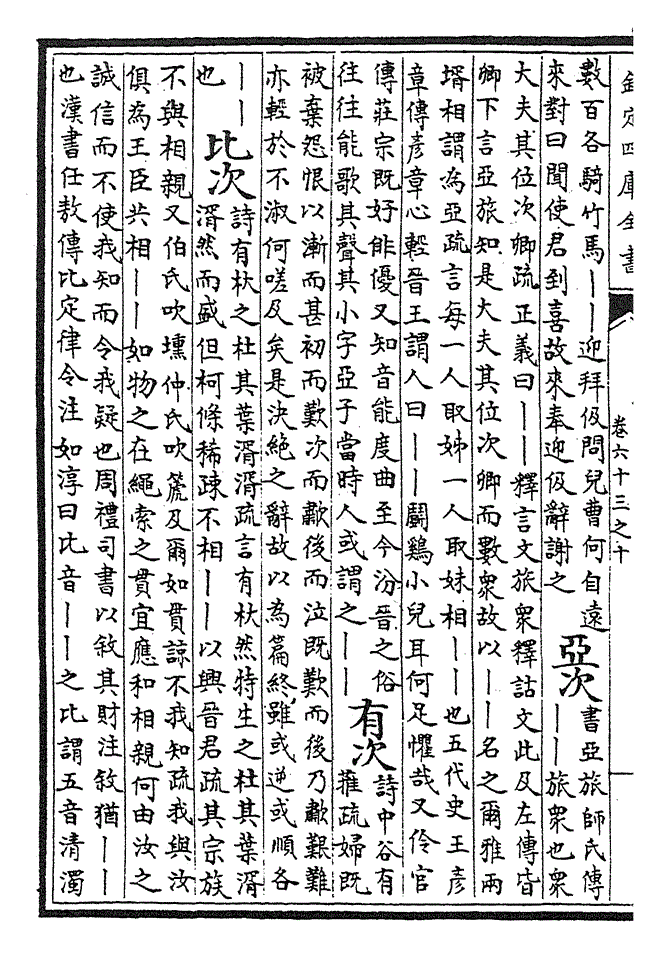 欽定四庫全書
卷六十三之十
數百各騎竹馬——迎拜伋問兒曹何自遠
來對曰聞使君到喜故來奉迎伋辭謝之
亞次
書亞旅師氏傳
——旅衆也衆
大夫其位次卿疏正義曰——釋言文旅衆釋詁文此及左傳皆
卿下言亞旅知是大夫其位次卿而數衆故以——名之爾雅兩
壻相謂為亞疏言每一人取姊一人取妹相——也五代史王彦
章傳彦章心輕晉王謂人曰——鬭鷄小兒耳何足懼哉又伶官
傳莊宗既好俳優又知音能度曲至今汾晉之俗
往往能歌其聲其小字亞子當時人或謂之——
有次
詩中谷有
蓷疏婦既
被棄怨恨以漸而甚初而歎次而歗後而泣既歎而後乃歗艱難
亦輕於不淑何嗟及矣是決絶之辭故以為篇終雖或逆或順各
——
也
比次
詩有杕之杜其葉湑湑疏言有杕然特生之杜其葉湑
湑然而盛但柯條稀踈不相——以興晉君疏其宗族
不與相親又伯氏吹壎仲氏吹篪及爾如貫諒不我知疏我與汝
俱為王臣共相——如物之在繩索之貫宜應和相親何由汝之
誠信而不使我知而令我疑也周禮司書以敘其財注敘猶——
也漢書任敖傳比定律令注如淳曰比音——之比謂五音清濁